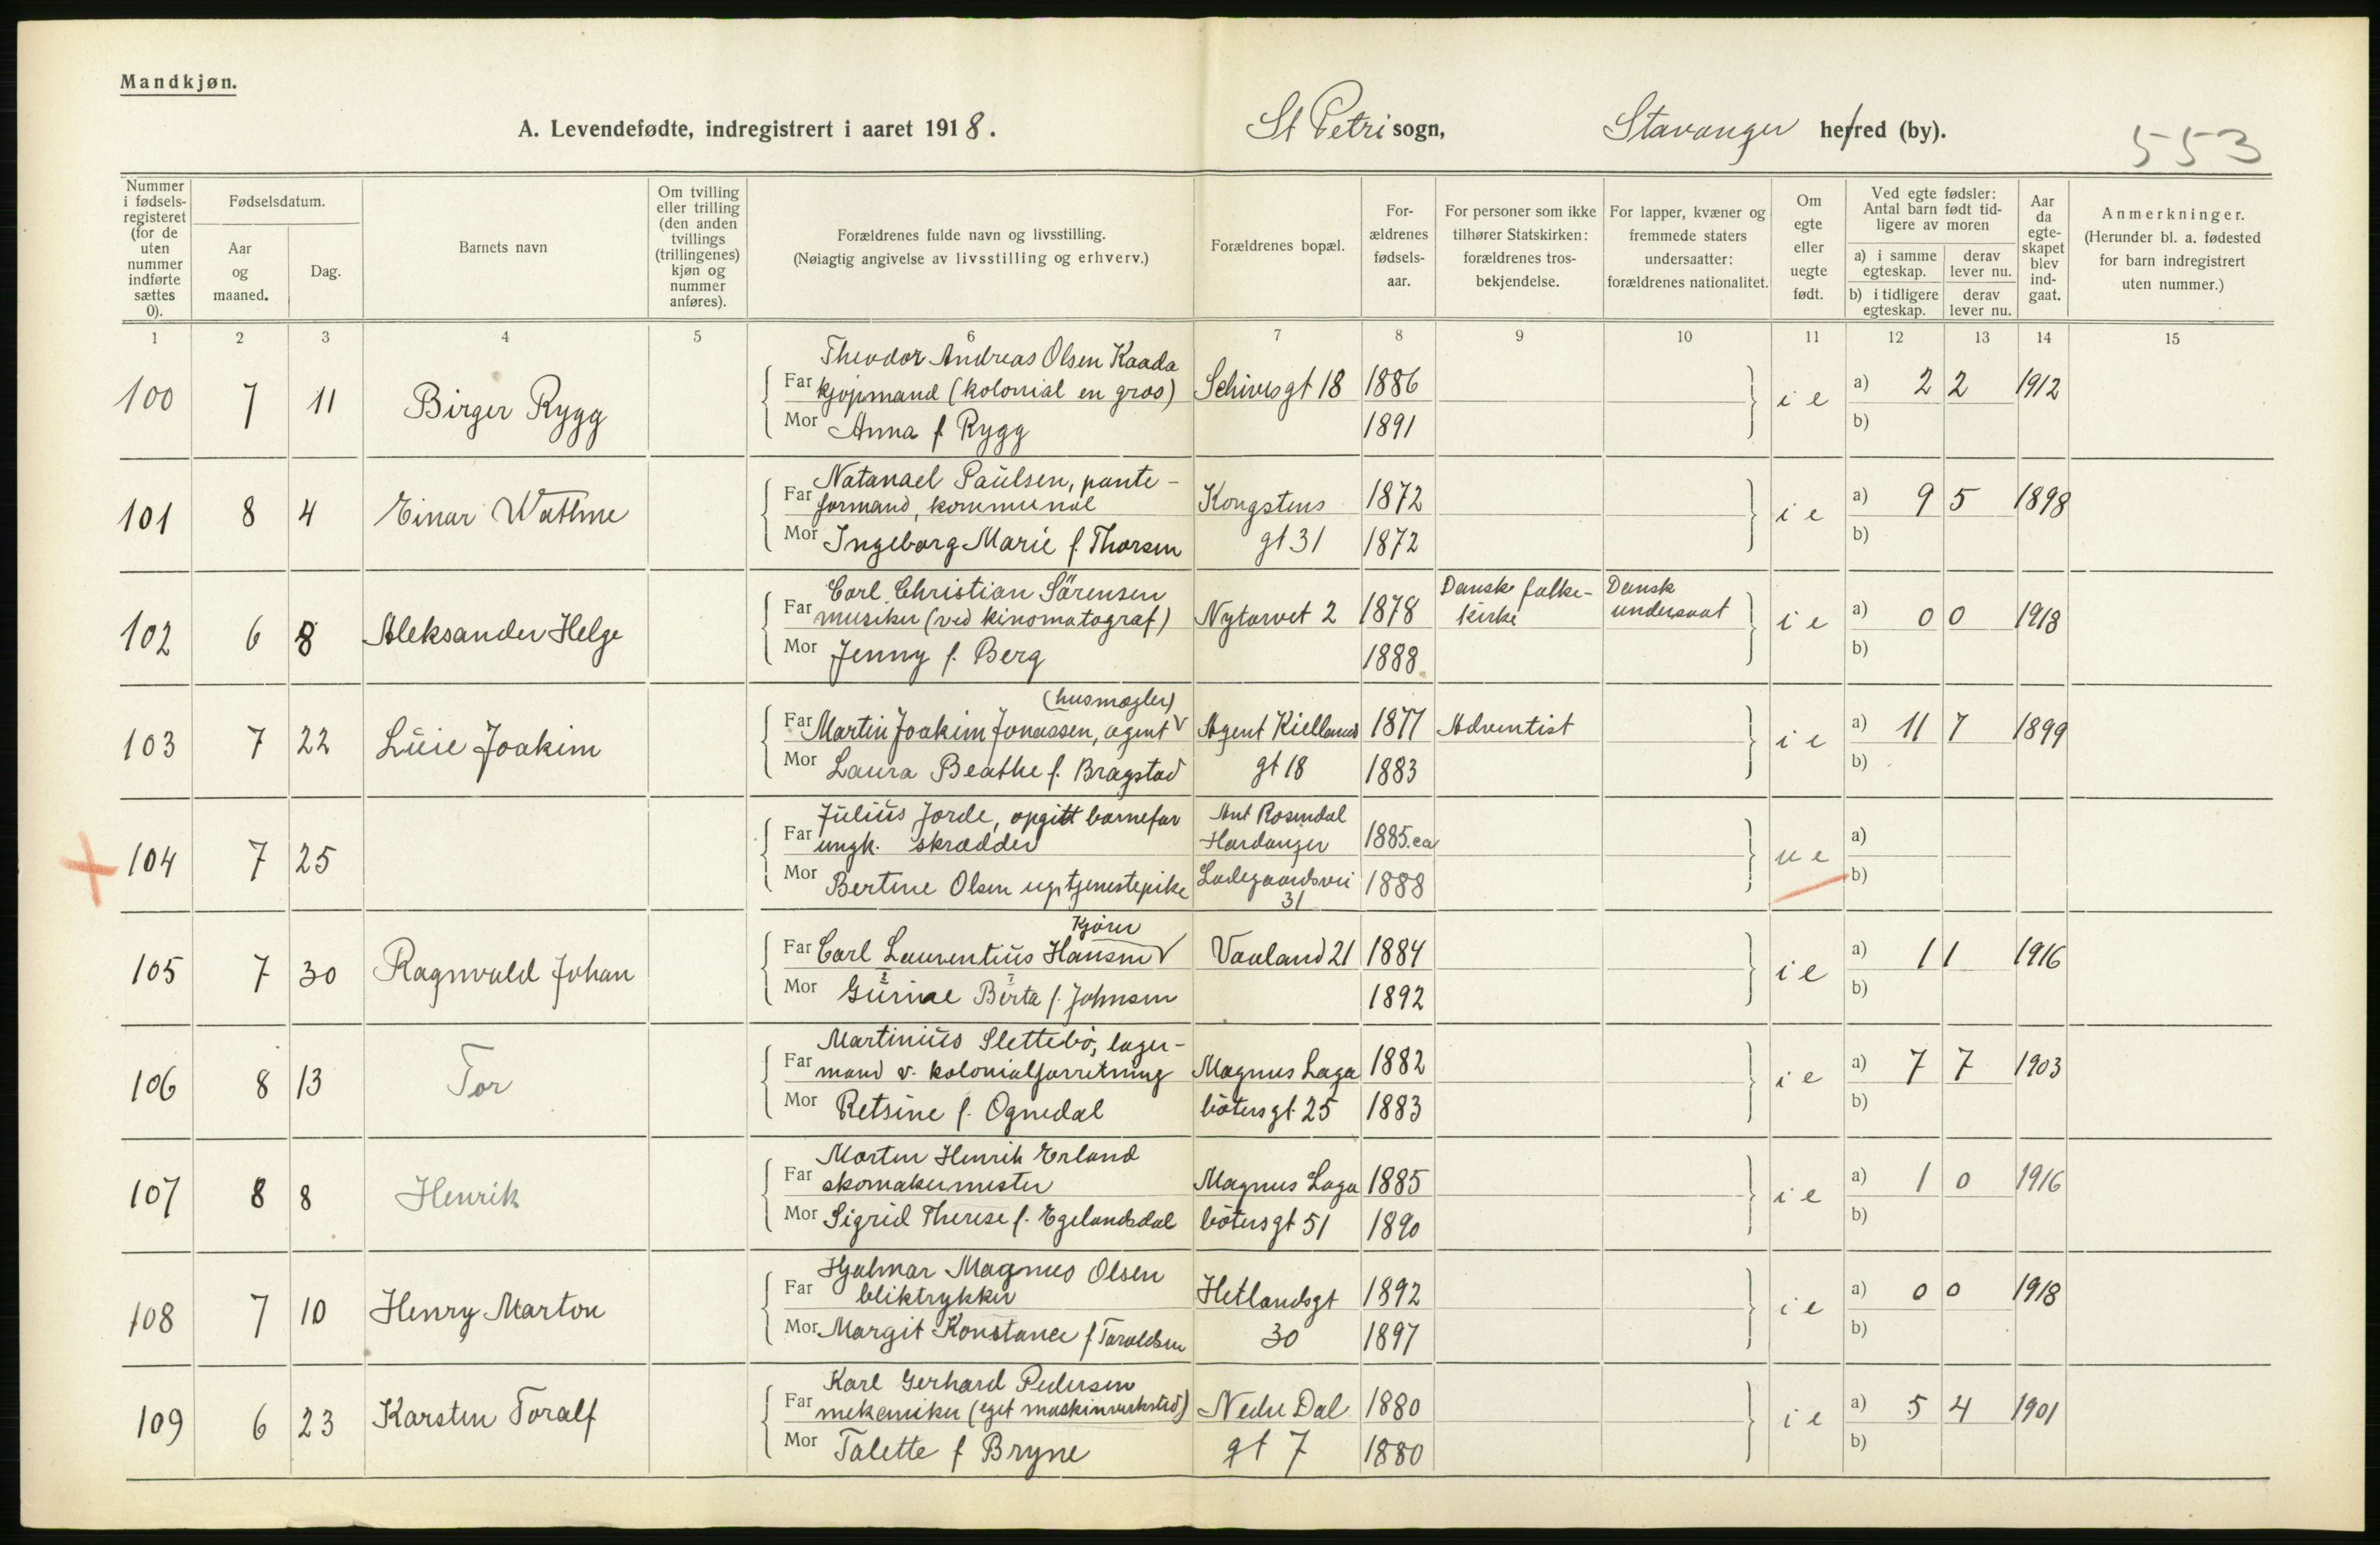 Mandkjøn.
A. Levendefødte, indregistrert i aaret 1918.
St Petri sogn,
Stavanger herred (by).
553
Nummer i fødsels-registeret (for de uten nummer indførte sættes 0).
Fødselsdatum.
Aar og maaned.
Dag.
Barnets navn
Om tvilling eller trilling (den anden tvillings (trillingenes) kjøn og nummer anføres).
Forældrenes fulde navn og livsstilling.
(Nøiagtig angivelse av livsstilling og erhverv.)
Forældrenes bopæl.
For-ældrenes fødsels-aar.
For personer som ikke tilhører Statskirken: forældrenes tros-bekjendelse.
For lapper, kvæner og fremmede staters undersaatter: forældrenes nationalitet.
Om egte eller uegte født.
Ved egte fødsler: Antal barn født tid-ligere av moren
a) i samme egteskap.
derav lever nu.
b) i tidligere egteskap.
derav lever nu.
Aar da egte-skapet blev ind-gaat.
Anmerkninger.
(Herunder bl. a. fødested for barn indregistrert uten nummer.)
1 2 3 4 5 6 7 8 9 10 11 12 13 14 15
Theodor Andreas Olsen Kaada
100 7 11 Birger Rygg Far kjøpmand (kolonial en gros) Schivesgt 18 1886 i e a) 2 2 1912
Mor Anna f. Rygg 1891 b)
Natanael Paulsen, pante-
101 8 4 Einar Wathne Far formand, kommunal Kongstens 1872 i e a) 9 5 1898
Mor Ingeborg Marie f. Thorsen gt 31 1872 b)
Carl Christian Sörensen Danske folke- Dansk
102 6 8 Aleksander Helge Far musiker (ved kinomatograf) Nytorvet 2 1878 kirke undersaat i e a) 0 0 1918
Mor Jenny f. Berg 1888 b)
(husmægler)
103 7 22 Luie Joakim Far Martin Joakim Jonassen, agent Agent Kiellands 1877 Adventist i e a) 11 7 1899
Mor Laura Beathe f. Bragstad gt 18 1883 b)
Julius Jorde, opgitt barnefar Ant Rosendal
104 7 25 Far ungk. skrædder Hardanger 1885.ca u e a)
Mor Bertine Olsen ug. tjenestepike Ladegaardsvei 31 1888 b)
Kjører
105 7 30 Ragnvald Johan Far Carl Laurentius Hansen Vaaland 21 1884 i e a) 1 1 1916
Mor Gurine Berta f. Johnsen 1892 b)
Martinius Slettebö, lager-
106 8 13 Tor Far mand v. kolonialforretning Magnus Laga 1882 i e a) 7 7 1903
Mor Retsine f. Ognedal bötersgt. 25 1883 b)
Morten Henrik Erland
107 8 8 Henrik Far skomakermester Magnus Laga 1885 i e a) 1 0 1916
Mor Sigrid Therese f. Egelandsdal bötersgt 51 1890 b)
Hjalmar Magnus Olsen
108 7 10 Henry Marton Far bliktrykker Hetlandsgt 1892 i e a) 0 0 1918
Mor Margit Konstance f Taraldsen 30 1897 b)
Karl Gerhard Pedersen
109 6 23 Karsten Toralf Far mekaniker (eget maskinverksted) Nedre Dal 1880 i e a) 5 4 1901
Mor Talette f Bryne gt 7 1880 b)